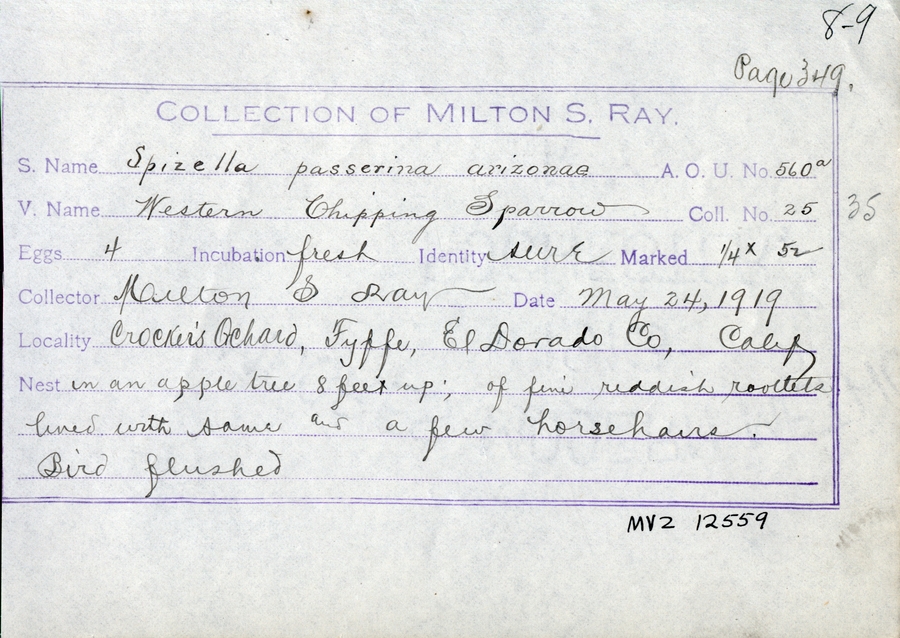 8-9
Page 349.
COLLECTION OF MILTON S. RAY.
S. Name Spizella passerina arizonae A. O. U. No. 560a
V. Name Western Chipping Sparrow Coll. No. 25 35
Eggs 4 Incubation fresh Identity sure Marked 1/4 x 52
Collector Milton S Ray Date May 24, 1919
Locality Crocker's Orchard, Fyffe, El Dorado Co, Calif
Nest in an apple tree 8 feet up; of fine reddish rootlets
lined with same and a few horsehairs.
Bird flushed
MVZ 12559